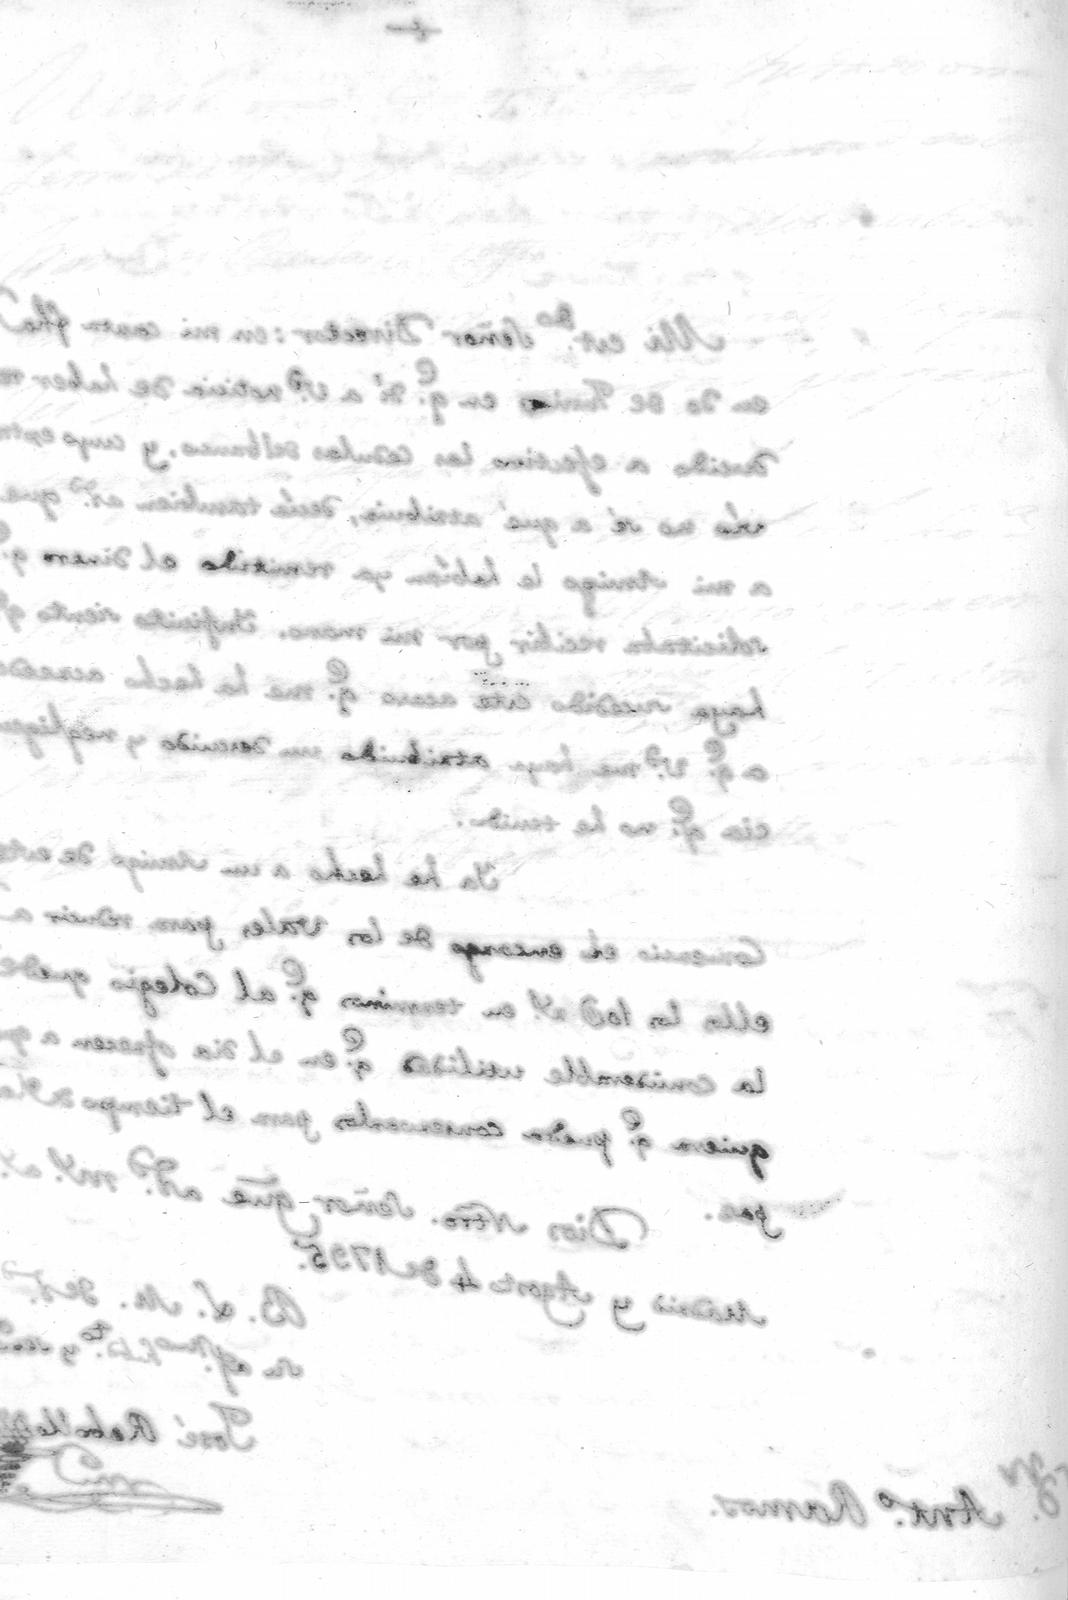 Mi est.do Señor Director: en mi carta fha
en 30 de Junio en q.e di a V.d noticia de haber
ducido a efectivo las cedulas del banco, y cuyo extra
vio no sé a qué atribuir, decia tambien a V.d que
a mi Amigo le habian ya remitido el dinero q.e
solicitaba recibir por mi mano. Infinito siento q.e
haya sucedido este acaso q.e me ha hecho
a q.e V.d me haya atribuido un descuido y negligen
cia q.e no he tenido.
Ya he hecho a un Amigo de este
Comercio el encargo de los Vales para reducir a
ellos los 10D r.s en terminos q.e al Colegio quede
la considerable utilidad q.e en el dia ofrecen a qual
quiera q.e pueda conservarlos para el tiempo de la
paz. Dios Ntro. Señor gue. a V.d m.s a.s
Madrid y Agosto 4 de 1795.
B. L. M. de V.d
su af.mo
José Rebollo
Ant.o Ramos.